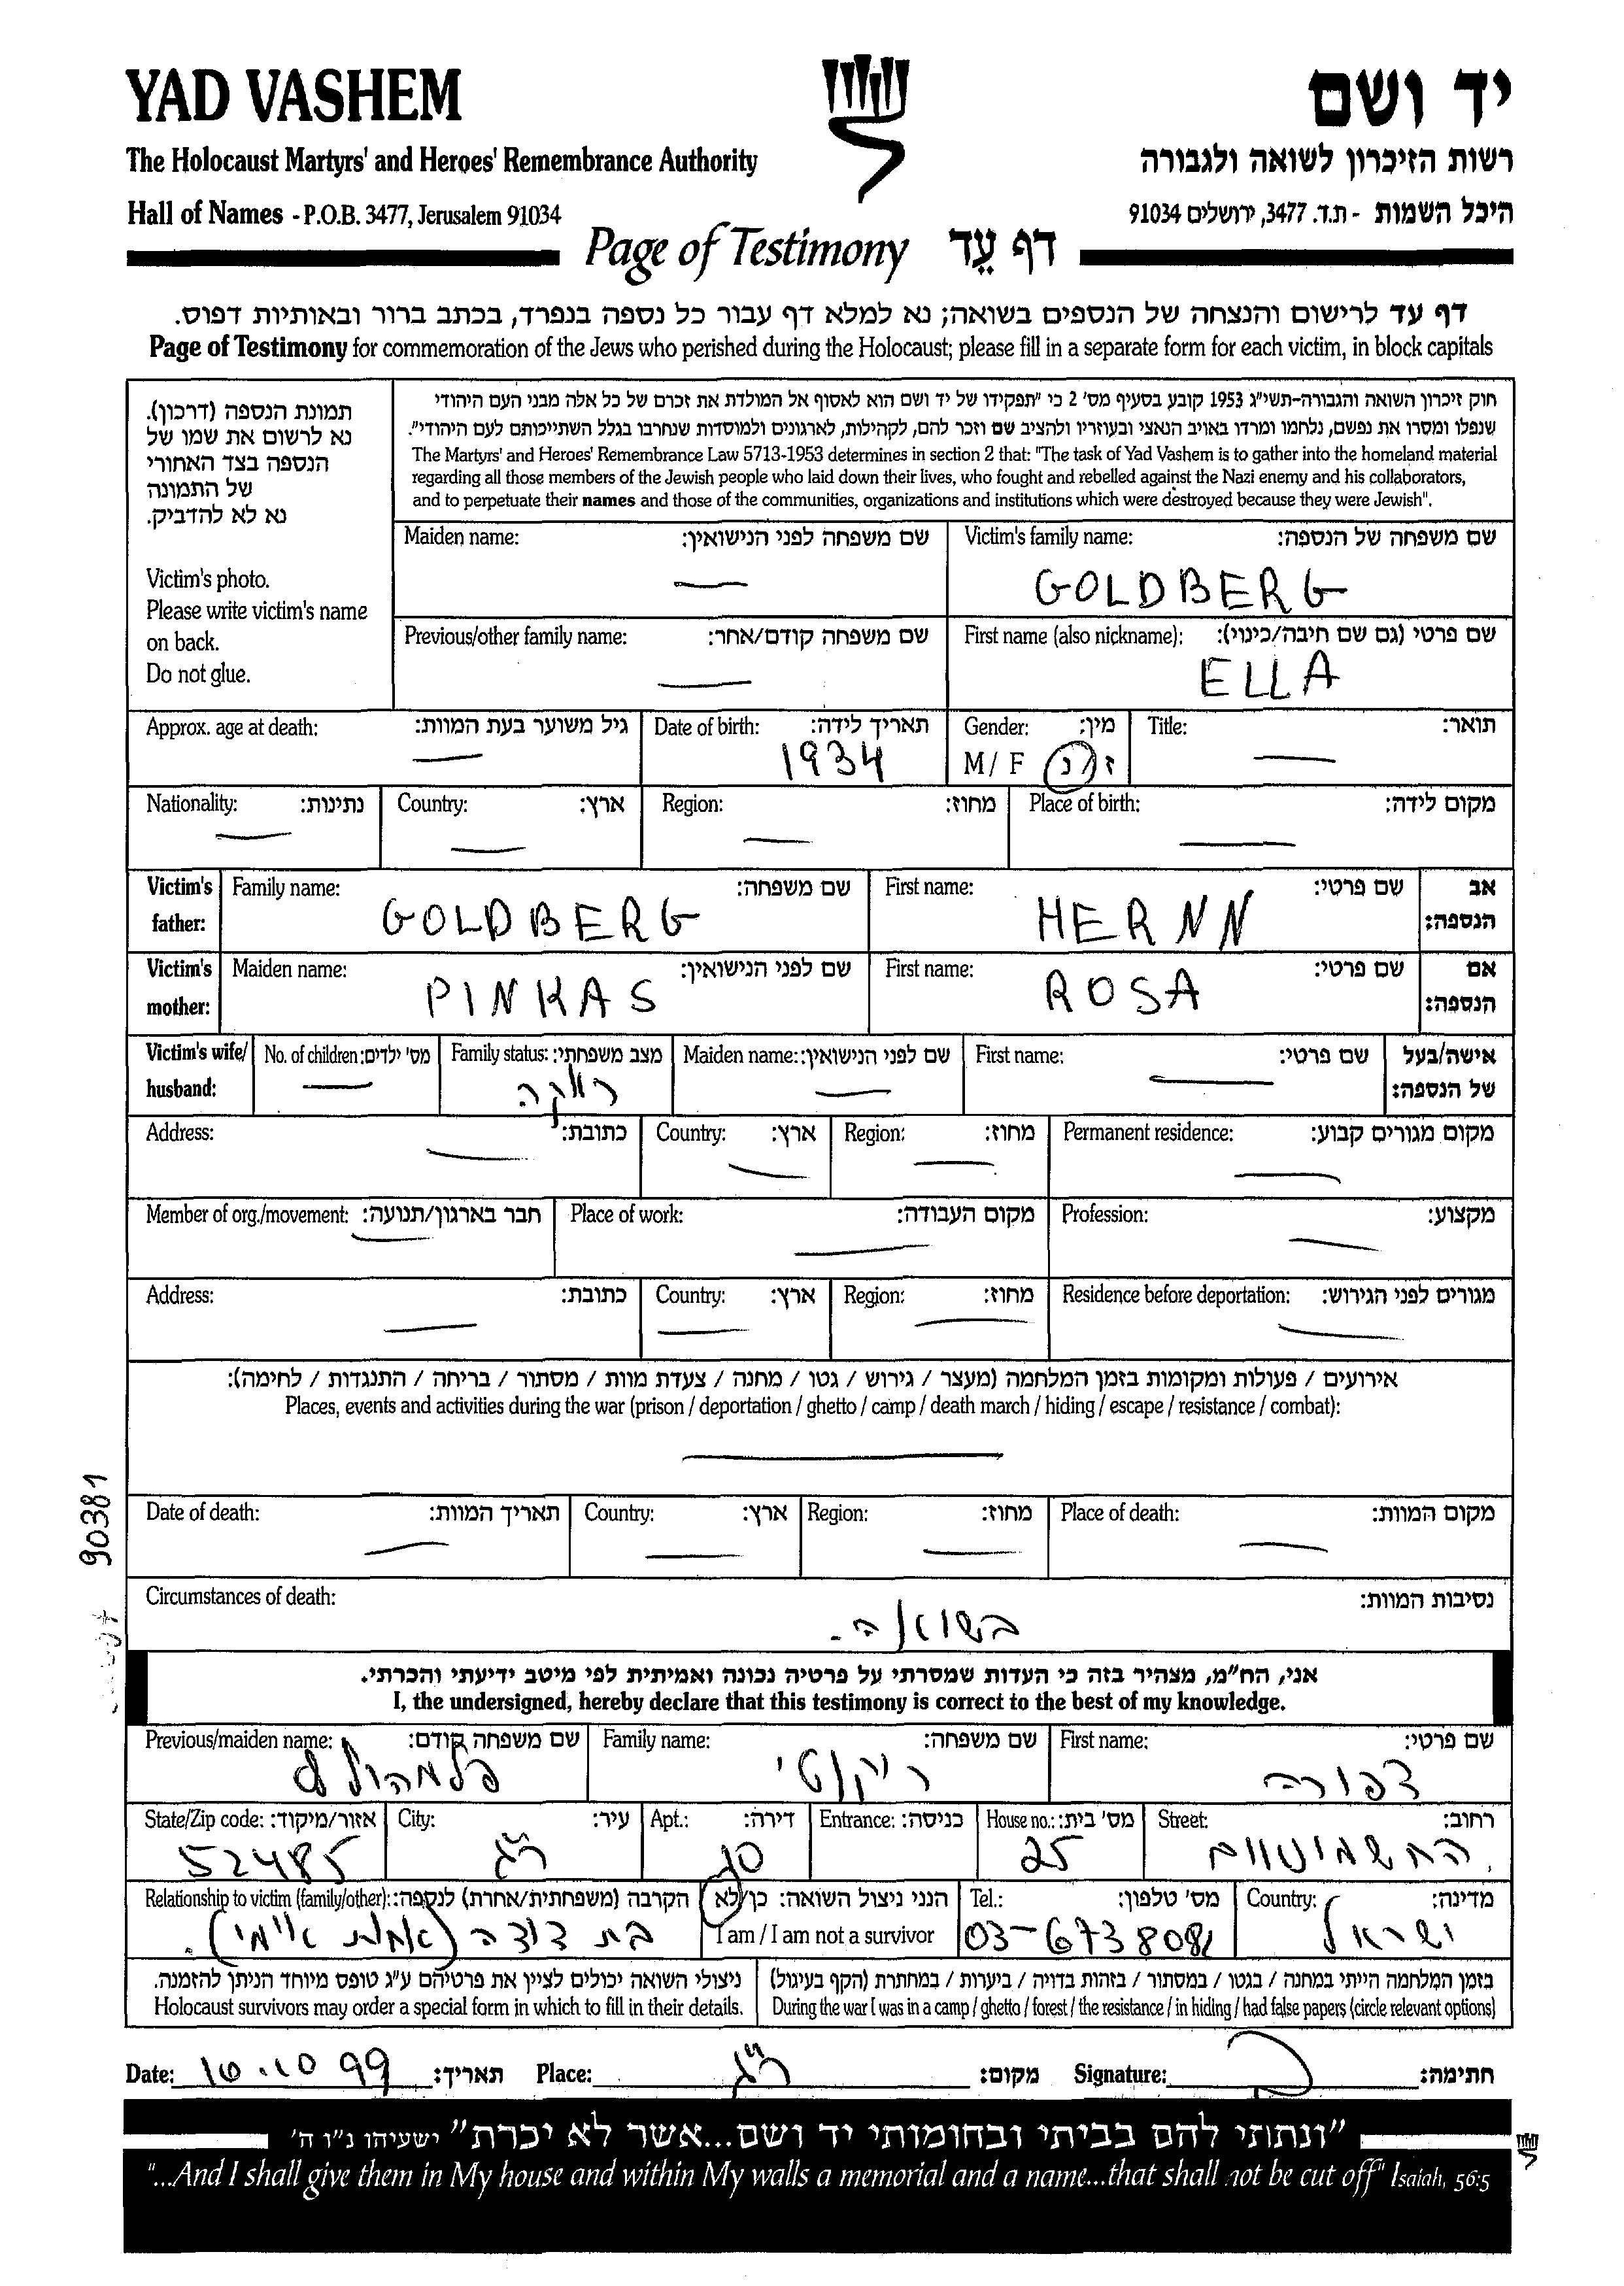 YAD VASHEM
יד ושם
The Holocaust Martyrs' and Heroes' Remembrance Authority
רשות הזיכרון לשואה ולגבורה
Hall of Names - P.O.B. 3477, Jerusalem 91034
היכל השמות - ת.ד. 3477, ירושלים 91034
Page of Testimony דף עֵד
דף עד לרישום והנצחה של הנספים בשואה; נא למלא דף עבור כל נספה בנפרד, בכתב ברור ובאותיות דפוס.
Page of Testimony for commemoration of the Jews who perished during the Holocaust; please fill in a separate form for each victim, in block capitals
תמונת הנספה (דרכון).
נא לרשום את שמו של
הנספה בצד האחורי
של התמונה
נא לא להדביק.
Victim's photo.
Please write victim's name
on back.
Do not glue.
חוק זיכרון השואה והגבורה-תשי"ג 1953 קובע בסעיף מס' 2 כי "תפקידו של יד ושם הוא לאסוף אל המולדת את זכרם של כל אלה מבני העם היהודי
שנפלו ומסרו את נפשם, נלחמו ומרדו באויב הנאצי ובעוזריו ולהציב שם וזכר להם, לקהילות, לארגונים ולמוסדות שנחרבו בגלל השתייכותם לעם היהודי".
The Martyrs' and Heroes' Remembrance Law 5713-1953 determines in section 2 that: "The task of Yad Vashem is to gather into the homeland material
regarding all those members of the Jewish people who laid down their lives, who fought and rebelled against the Nazi enemy and his collaborators,
and to perpetuate their names and those of the communities, organizations and institutions which were destroyed because they were Jewish".
Maiden name: שם משפחה לפני הנישואין:
Victim's family name: שם משפחה של הנספה:
GOLDBERG
Previous/other family name: שם משפחה קודם/אחר:
First name (also nickname): שם פרטי (גם שם חיבה/כינוי):
ELLA
Approx. age at death: גיל משוער בעת המוות:
Date of birth: תאריך לידה:
1934
Gender: מין:
M / F ז/נ
Title: תואר:
Nationality: נתינות:
Country: ארץ:
Region: מחוז:
Place of birth: מקום לידה:
Victim's father:
Family name: שם משפחה:
GOLDBERG
First name: שם פרטי:
HERNN
אב הנספה:
Victim's mother:
Maiden name: שם לפני הנישואין:
PINKAS
First name: שם פרטי:
ROSA
אם הנספה:
Victim's wife/ husband:
No. of children: מס' ילדים:
Family status: מצב משפחתי:
רווקה
Maiden name: שם לפני הנישואין:
First name: שם פרטי:
אישה/בעל של הנספה:
Address: כתובת:
Country: ארץ:
Region: מחוז:
Permanent residence: מקום מגורים קבוע:
Member of org./movement: חבר בארגון/תנועה:
Place of work: מקום העבודה:
Profession: מקצוע:
Address: כתובת:
Country: ארץ:
Region: מחוז:
Residence before deportation: מגורים לפני הגירוש:
אירועים / פעולות ומקומות בזמן המלחמה (מעצר / גירוש / גטו / מחנה / צעדת מוות / מסתור / בריחה / התנגדות / לחימה):
Places, events and activities during the war (prison / deportation / ghetto / camp / death march / hiding / escape / resistance / combat):
90381
Date of death: תאריך המוות:
Country: ארץ:
Region: מחוז:
Place of death: מקום המוות:
Circumstances of death: נסיבות המוות:
בשואה.
אני, הח"מ, מצהיר בזה כי העדות שמסרתי על פרטיה נכונה ואמיתית לפי מיטב ידיעתי והכרתי.
I, the undersigned, hereby declare that this testimony is correct to the best of my knowledge.
Previous/maiden name: שם משפחה קודם:
Family name: שם משפחה:
ריקנטי
First name: שם פרטי:
צפורה
State/Zip code: אזור/מיקוד:
52485
City: עיר:
ר"ג
Apt.: דירה:
Entrance: כניסה:
House no.: מס' בית:
25
Street: רחוב:
Relationship to victim (family/other): הקרבה (משפחתית/אחרת) לנספה:
בת דודה
הנני ניצול השואה: כן/לא
I am / I am not a survivor
Tel.: מס' טלפון:
03-6738081
Country: מדינה:
ישראל
ניצולי השואה יכולים לציין את פרטיהם ע"ג טופס מיוחד הניתן להזמנה.
Holocaust survivors may order a special form in which to fill in their details.
בזמן המלחמה הייתי במחנה / בגטו / במסתור / בזהות בדויה / ביערות / במחתרת (הקף בעיגול)
During the war I was in a camp / ghetto / forest / the resistance / in hiding / had false papers (circle relevant options)
Date: 10.10 99 תאריך: Place: ר"ג מקום: Signature: חתימה:
"ונתתי להם בביתי ובחומותי יד ושם...אשר לא יכרת" ישעיהו נ"ו ה'
"...And I shall give them in My house and within My walls a memorial and a name...that shall not be cut off" Isaiah, 56:5